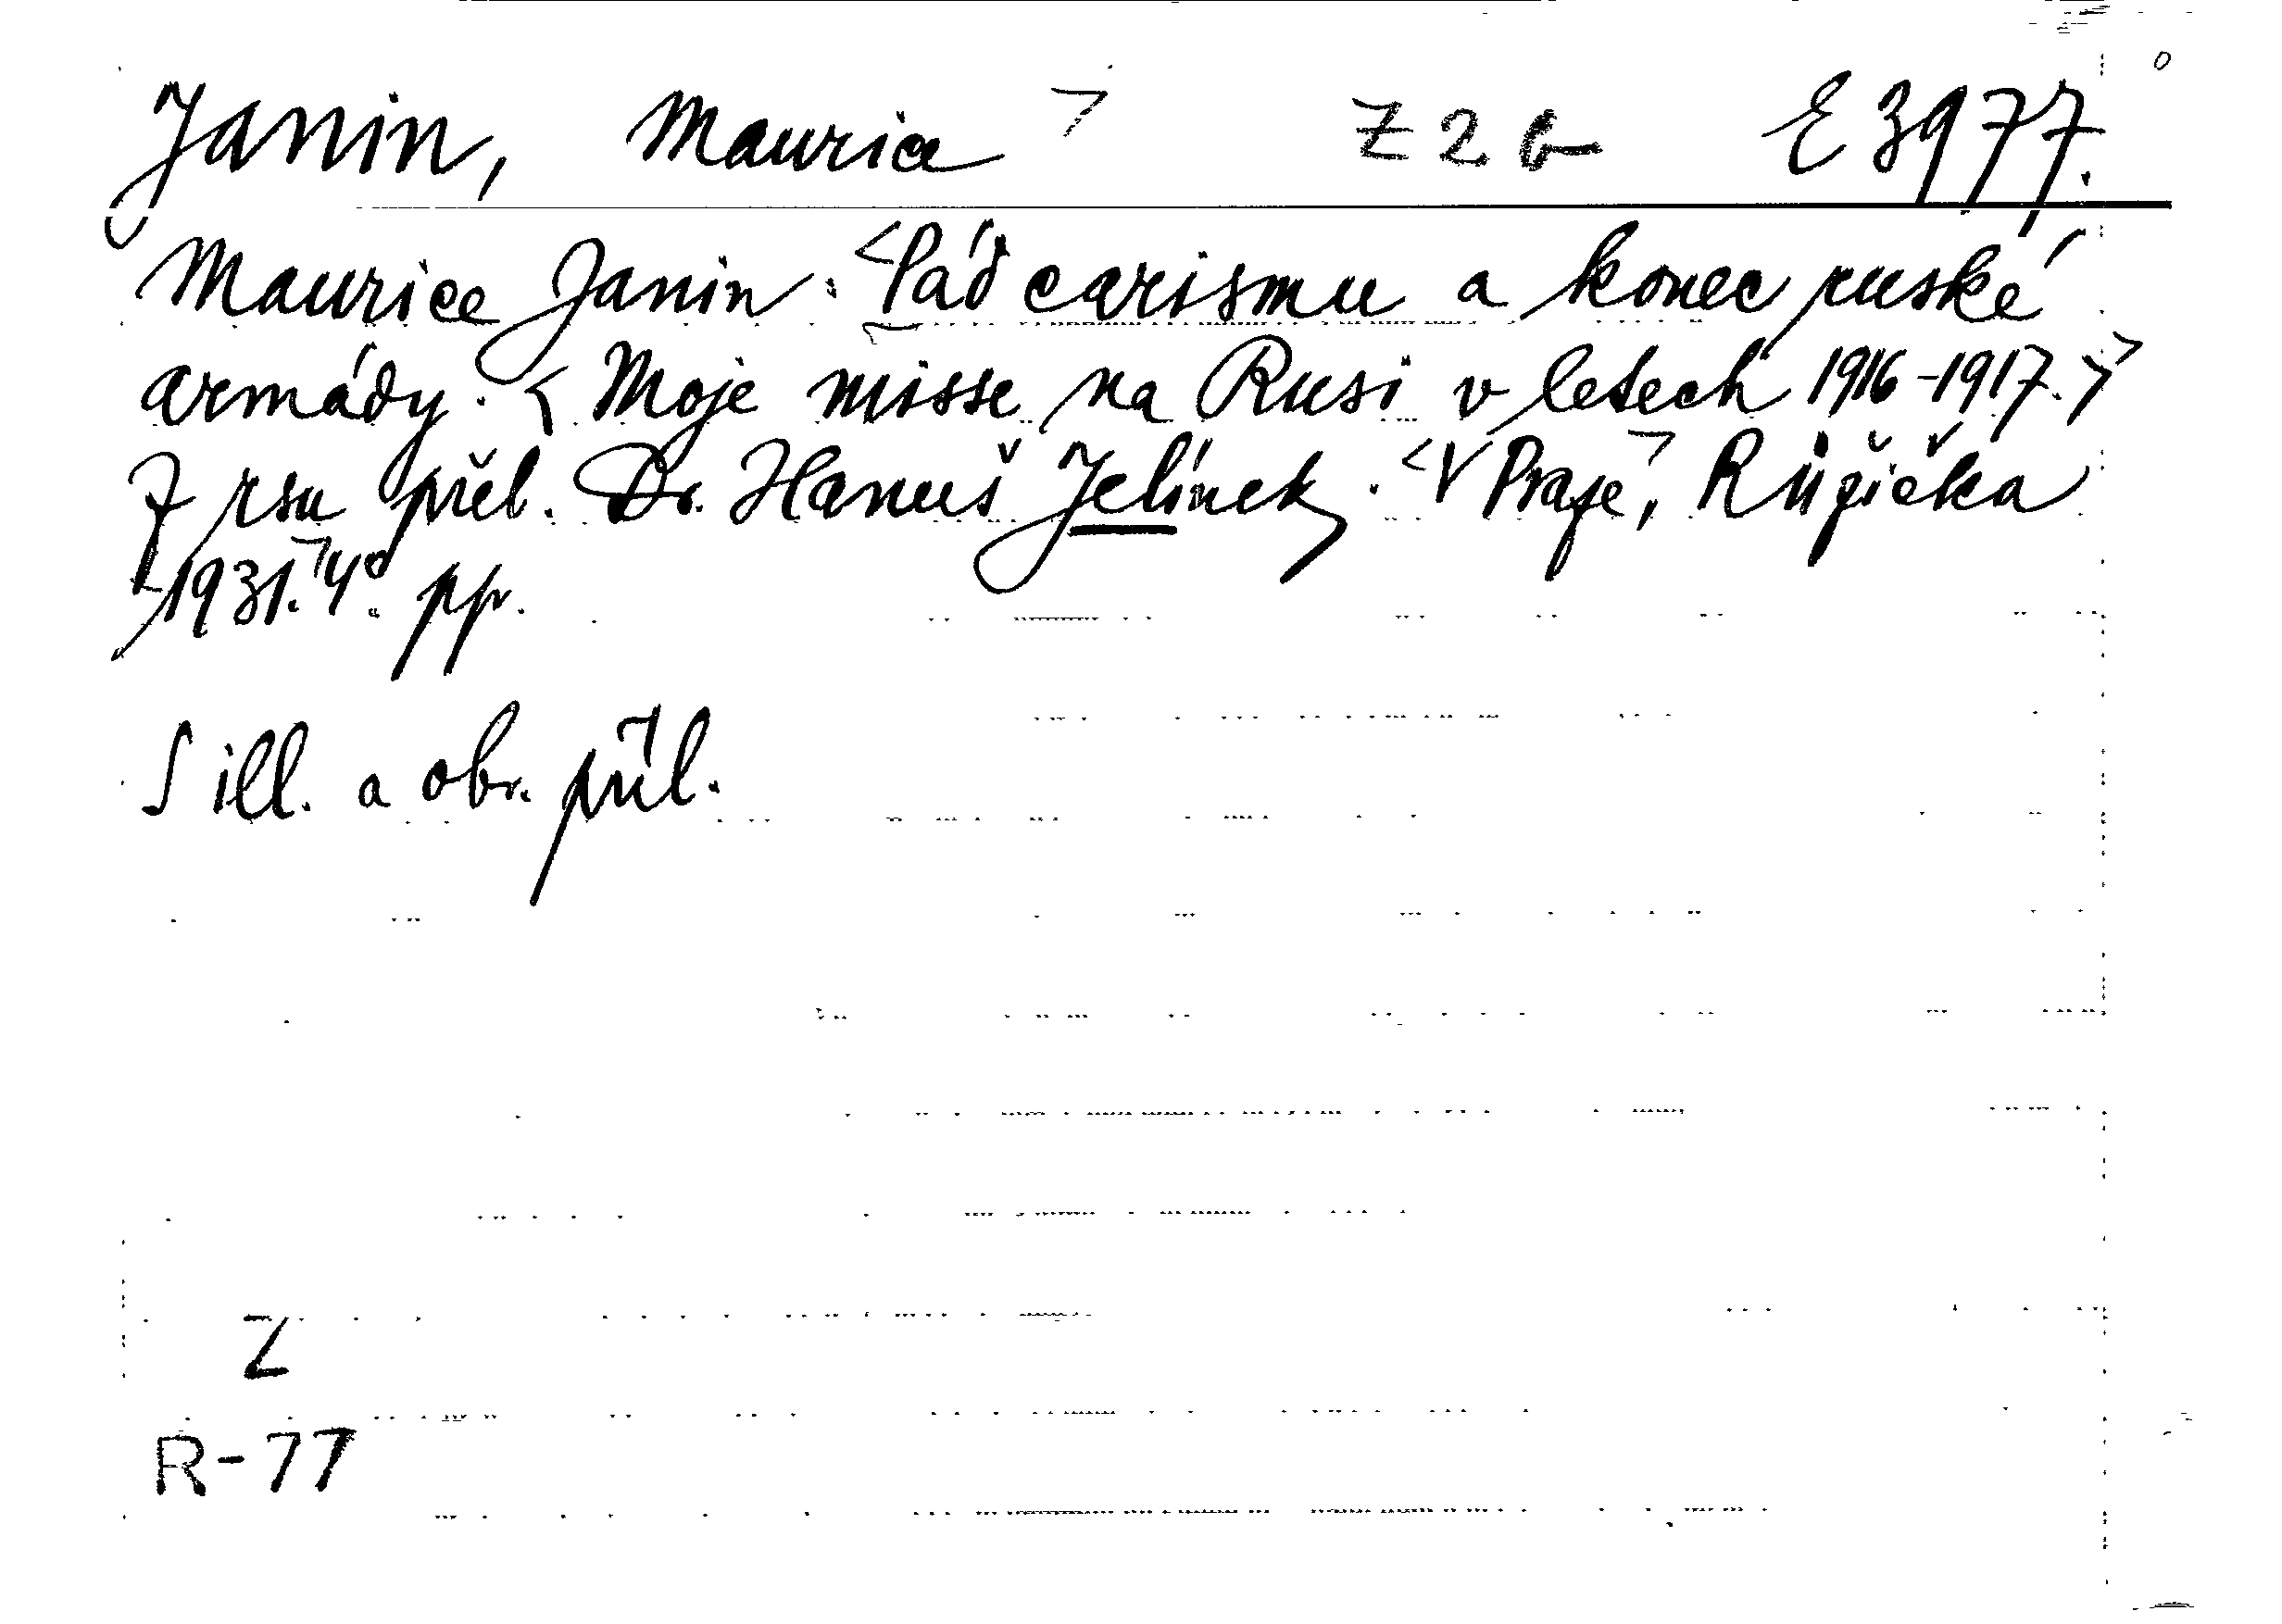 Janin, Maurice Z 2 b E 3977.
Maurice Janin: Pád carismu a konec ruské
armády. Moje misse na Rusi v letech 1916-1917.
Z rsu přel. Dr. Hanuš Jelínek. V Praze, Růžička
1931. 4°. pp.
S ill. a obr. příl.
Z
R-77